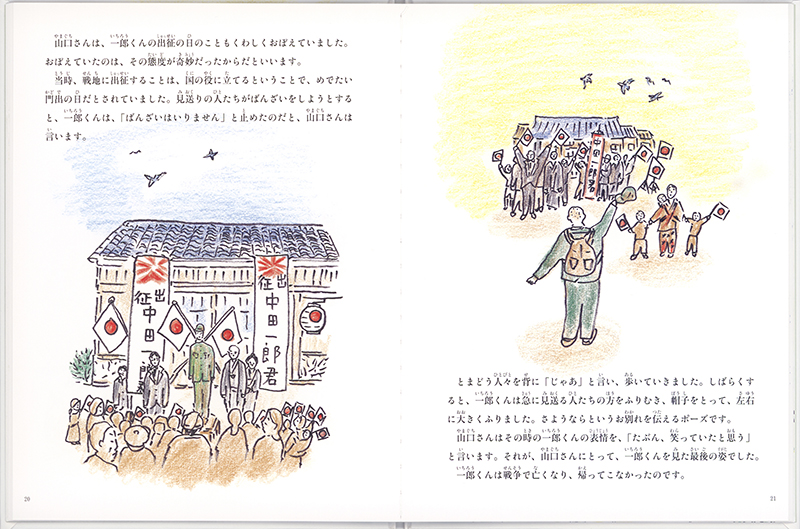 山口さんは、一郎くんの出征の日のこともくわしくおぼえていました。
おぼえていたのは、その態度が奇妙だったからだといいます。
当時、戦地に出征することは、国の役に立てるということで、めでたい
門出の日だとされていました。見送りの人たちがばんざいをしようとする
と、一郎くんは、「ばんざいはいりません」と止めたのだと、山口さんは
言います。
出征 中田一郎君
出征 中田
20
中田一郎君
とまどう人々を背に「じゃあ」と言い、歩いていきました。しばらくす
ると、一郎くんは急に見送る人たちの方をふりむき、帽子をとって、左右
に大きくふりました。さようならというお別れを伝えるポーズです。
山口さんはその時の一郎くんの表情を、「たぶん、笑っていたと思う」
と言います。それが、山口さんにとって、一郎くんを見た最後の姿でした。
一郎くんは戦争で亡くなり、帰ってこなかったのです。
21